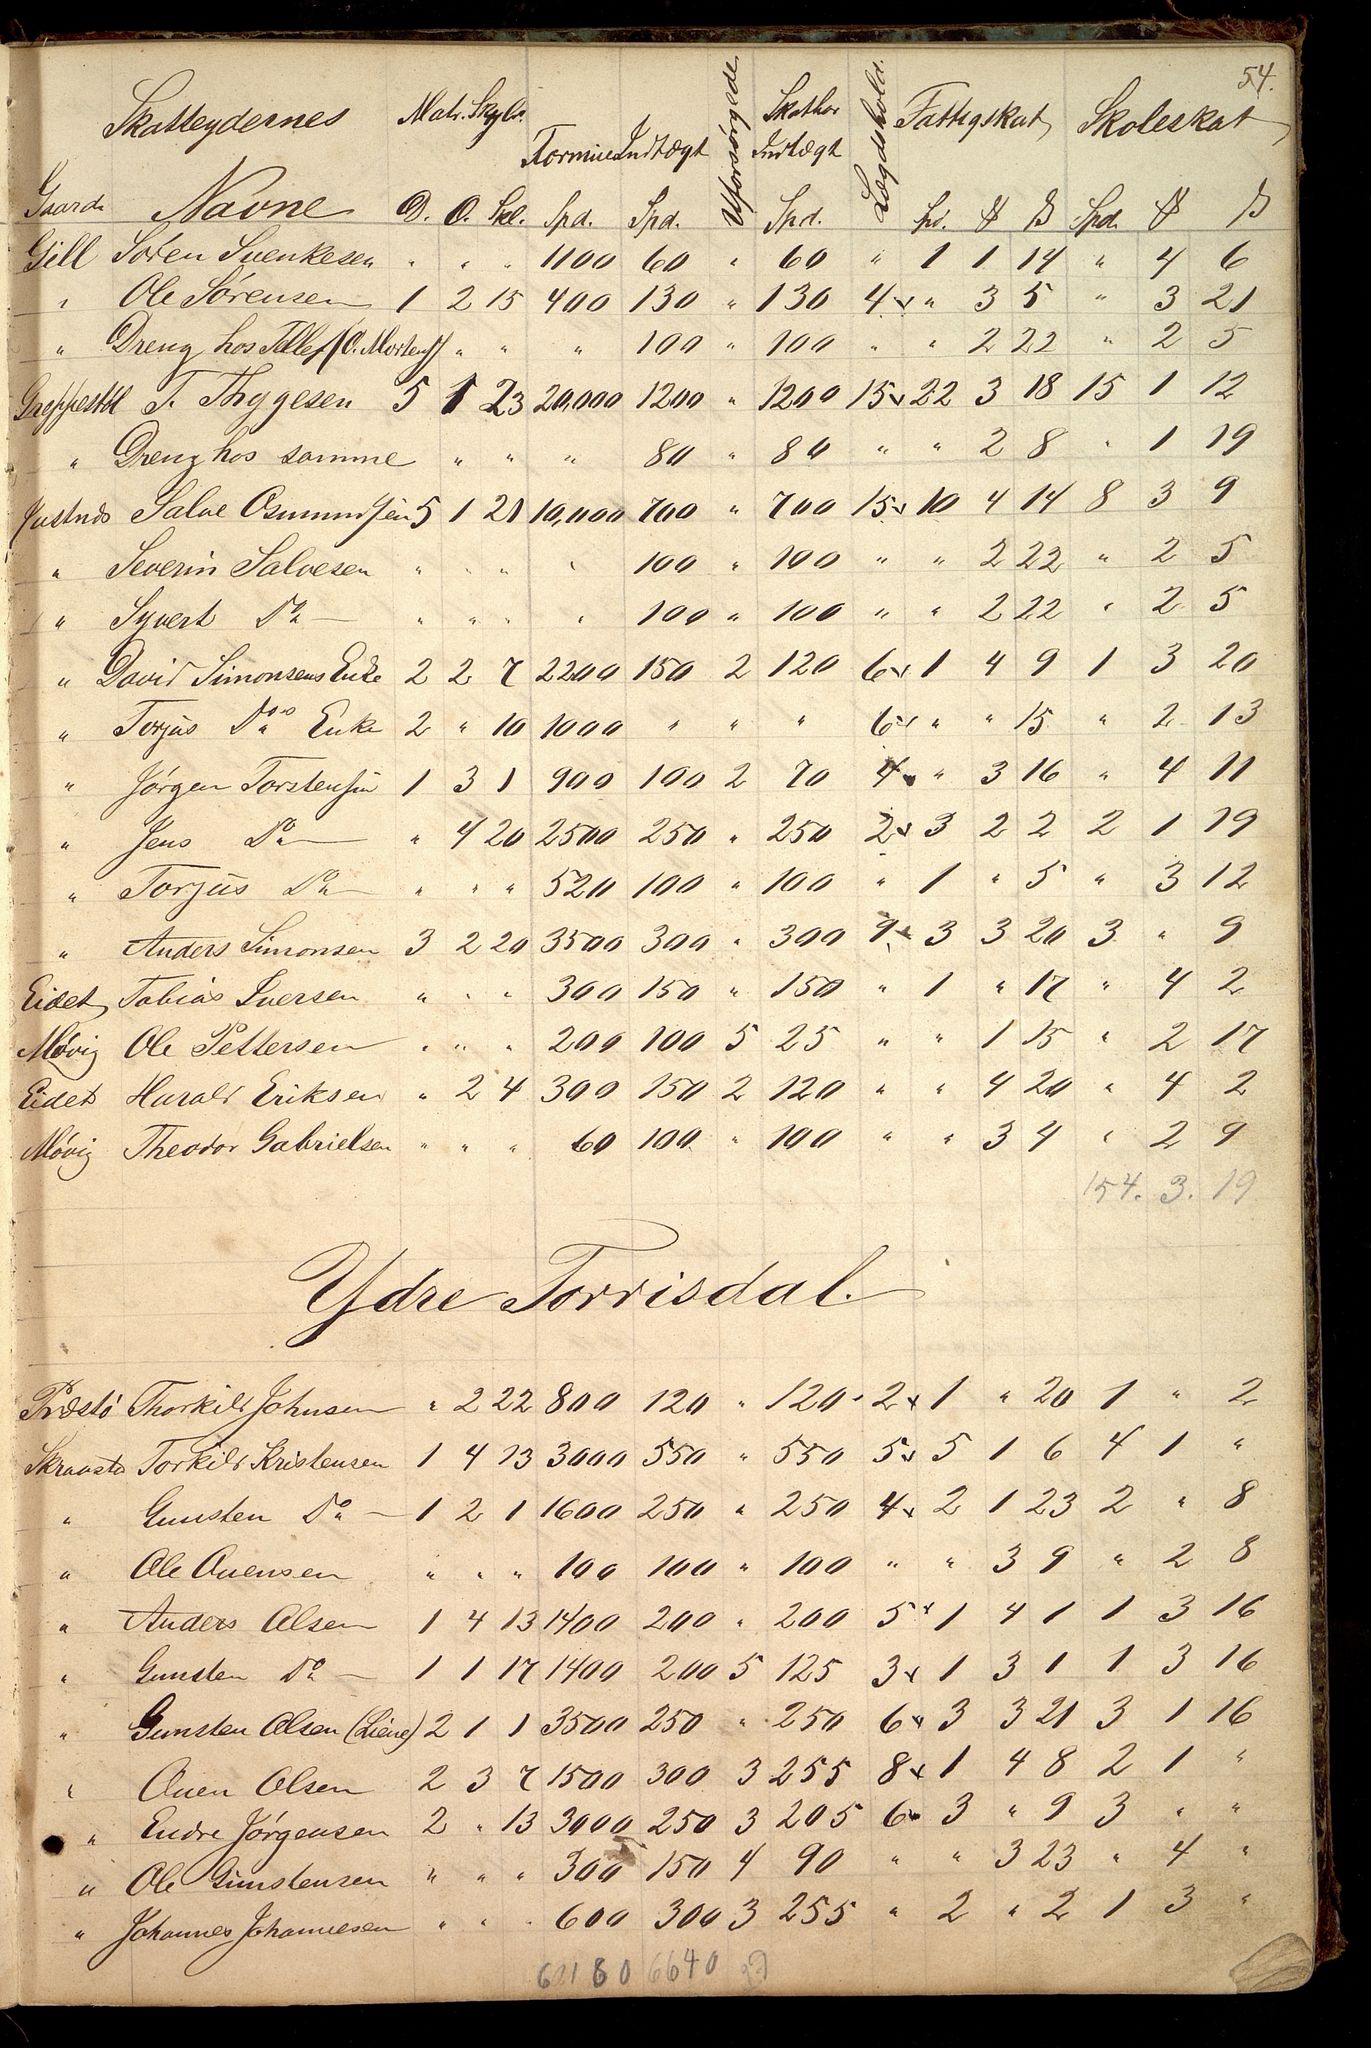 54.
Skatteydernes Matr. Skyld. Formue Indtægt Uforsørgede Skatbar Indtægt Lægdshold. Fattigskat Skoleskat
Gaard Navne D. O. Skl. Spd. Spd. Spd. Spd. ß Spd. ß
Gill Sören Svenkesen " " " 1100 60 " 60 " 1 1 14 " 4 6
" Ole Sörensen 1 2 15 400 130 " 130 4 " 3 5 " 3 21
" Dreng hos Tellef (O. Mortens) " " " 100 " 100 " " 2 22 " 2 5
Greppestöl T. Thygesen 5 1 23 20,000 1200 " 1200 15 22 3 18 15 1 12
" Dreng hos samme " " " 80 " 80 " " 2 8 " 1 19
Justnes Salve Osmundsen 5 1 21 10,000 700 " 700 15 10 4 14 8 3 9
" Severin Salvesen " " " " 100 " 100 " " 2 22 " 2 5
" Syvert Do " " " " 100 " 100 " " 2 22 " 2 5
" David Simonsens Enke 2 2 7 2200 150 2 120 6 1 4 9 1 3 20
" Torjus Dos Enke 2 " 10 1000 " " " 6 " " 15 " 2 13
" Jörgen Torstensen 1 3 1 900 100 2 70 4 " 3 16 " 4 11
" Jens Do " 4 20 2500 250 " 250 2 3 2 2 2 1 19
" Torjus Do " " " 520 100 " 100 " 1 " 5 " 3 12
" Anders Simonsen 3 2 20 3500 300 " 300 9 3 3 20 3 " 9
Eidet Tobias Iversen " " " 300 150 " 150 " 1 " 17 " 4 2
Mövig Ole Pettersen " " " 200 100 5 25 " " 1 15 " 2 17
Eidet Harald Eriksen " 2 4 300 150 2 120 " " 4 20 " 4 2
Mövig Theodor Gabrielsen " " " 60 100 " 100 " " 3 4 " 2 9
154. 3. 19
Ydre Torrisdal.
Præstö Thorkild Johnsen " 2 22 800 120 " 120 2 1 " 20 1 " 2
Torkild Kristensen 1 4 13 3000 550 " 550 5 5 1 6 4 1 "
" Gunsten Do 1 2 1 1600 250 " 250 4 2 1 23 2 " 8
" Ole Ouensen " " " 100 100 " 100 " " 3 9 " 2 8
" Anders Olsen 1 4 13 1400 200 " 200 5 1 4 1 1 3 16
" Gunsten Do 1 1 17 1400 200 5 125 3 1 3 1 1 3 16
" Gunsten Olsen (Liene) 2 1 1 3500 250 " 250 6 3 3 21 3 1 16
" Ouen Olsen 2 3 7 1500 300 3 255 8 1 4 8 2 1 "
" Endre Jörgensen 2 " 13 3000 250 3 205 6 3 " 9 3 " "
" Ole Gunstensen " " " 300 150 4 90 " " 3 23 " 4 "
" Johannes Johannesen " " " 600 300 3 255 " 2 " 2 1 3 "
6640